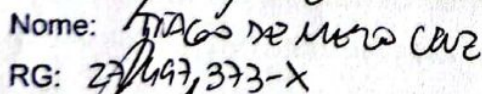 Nome: TIAGO DE MELO CRUZ
RG: 27.497.373-X